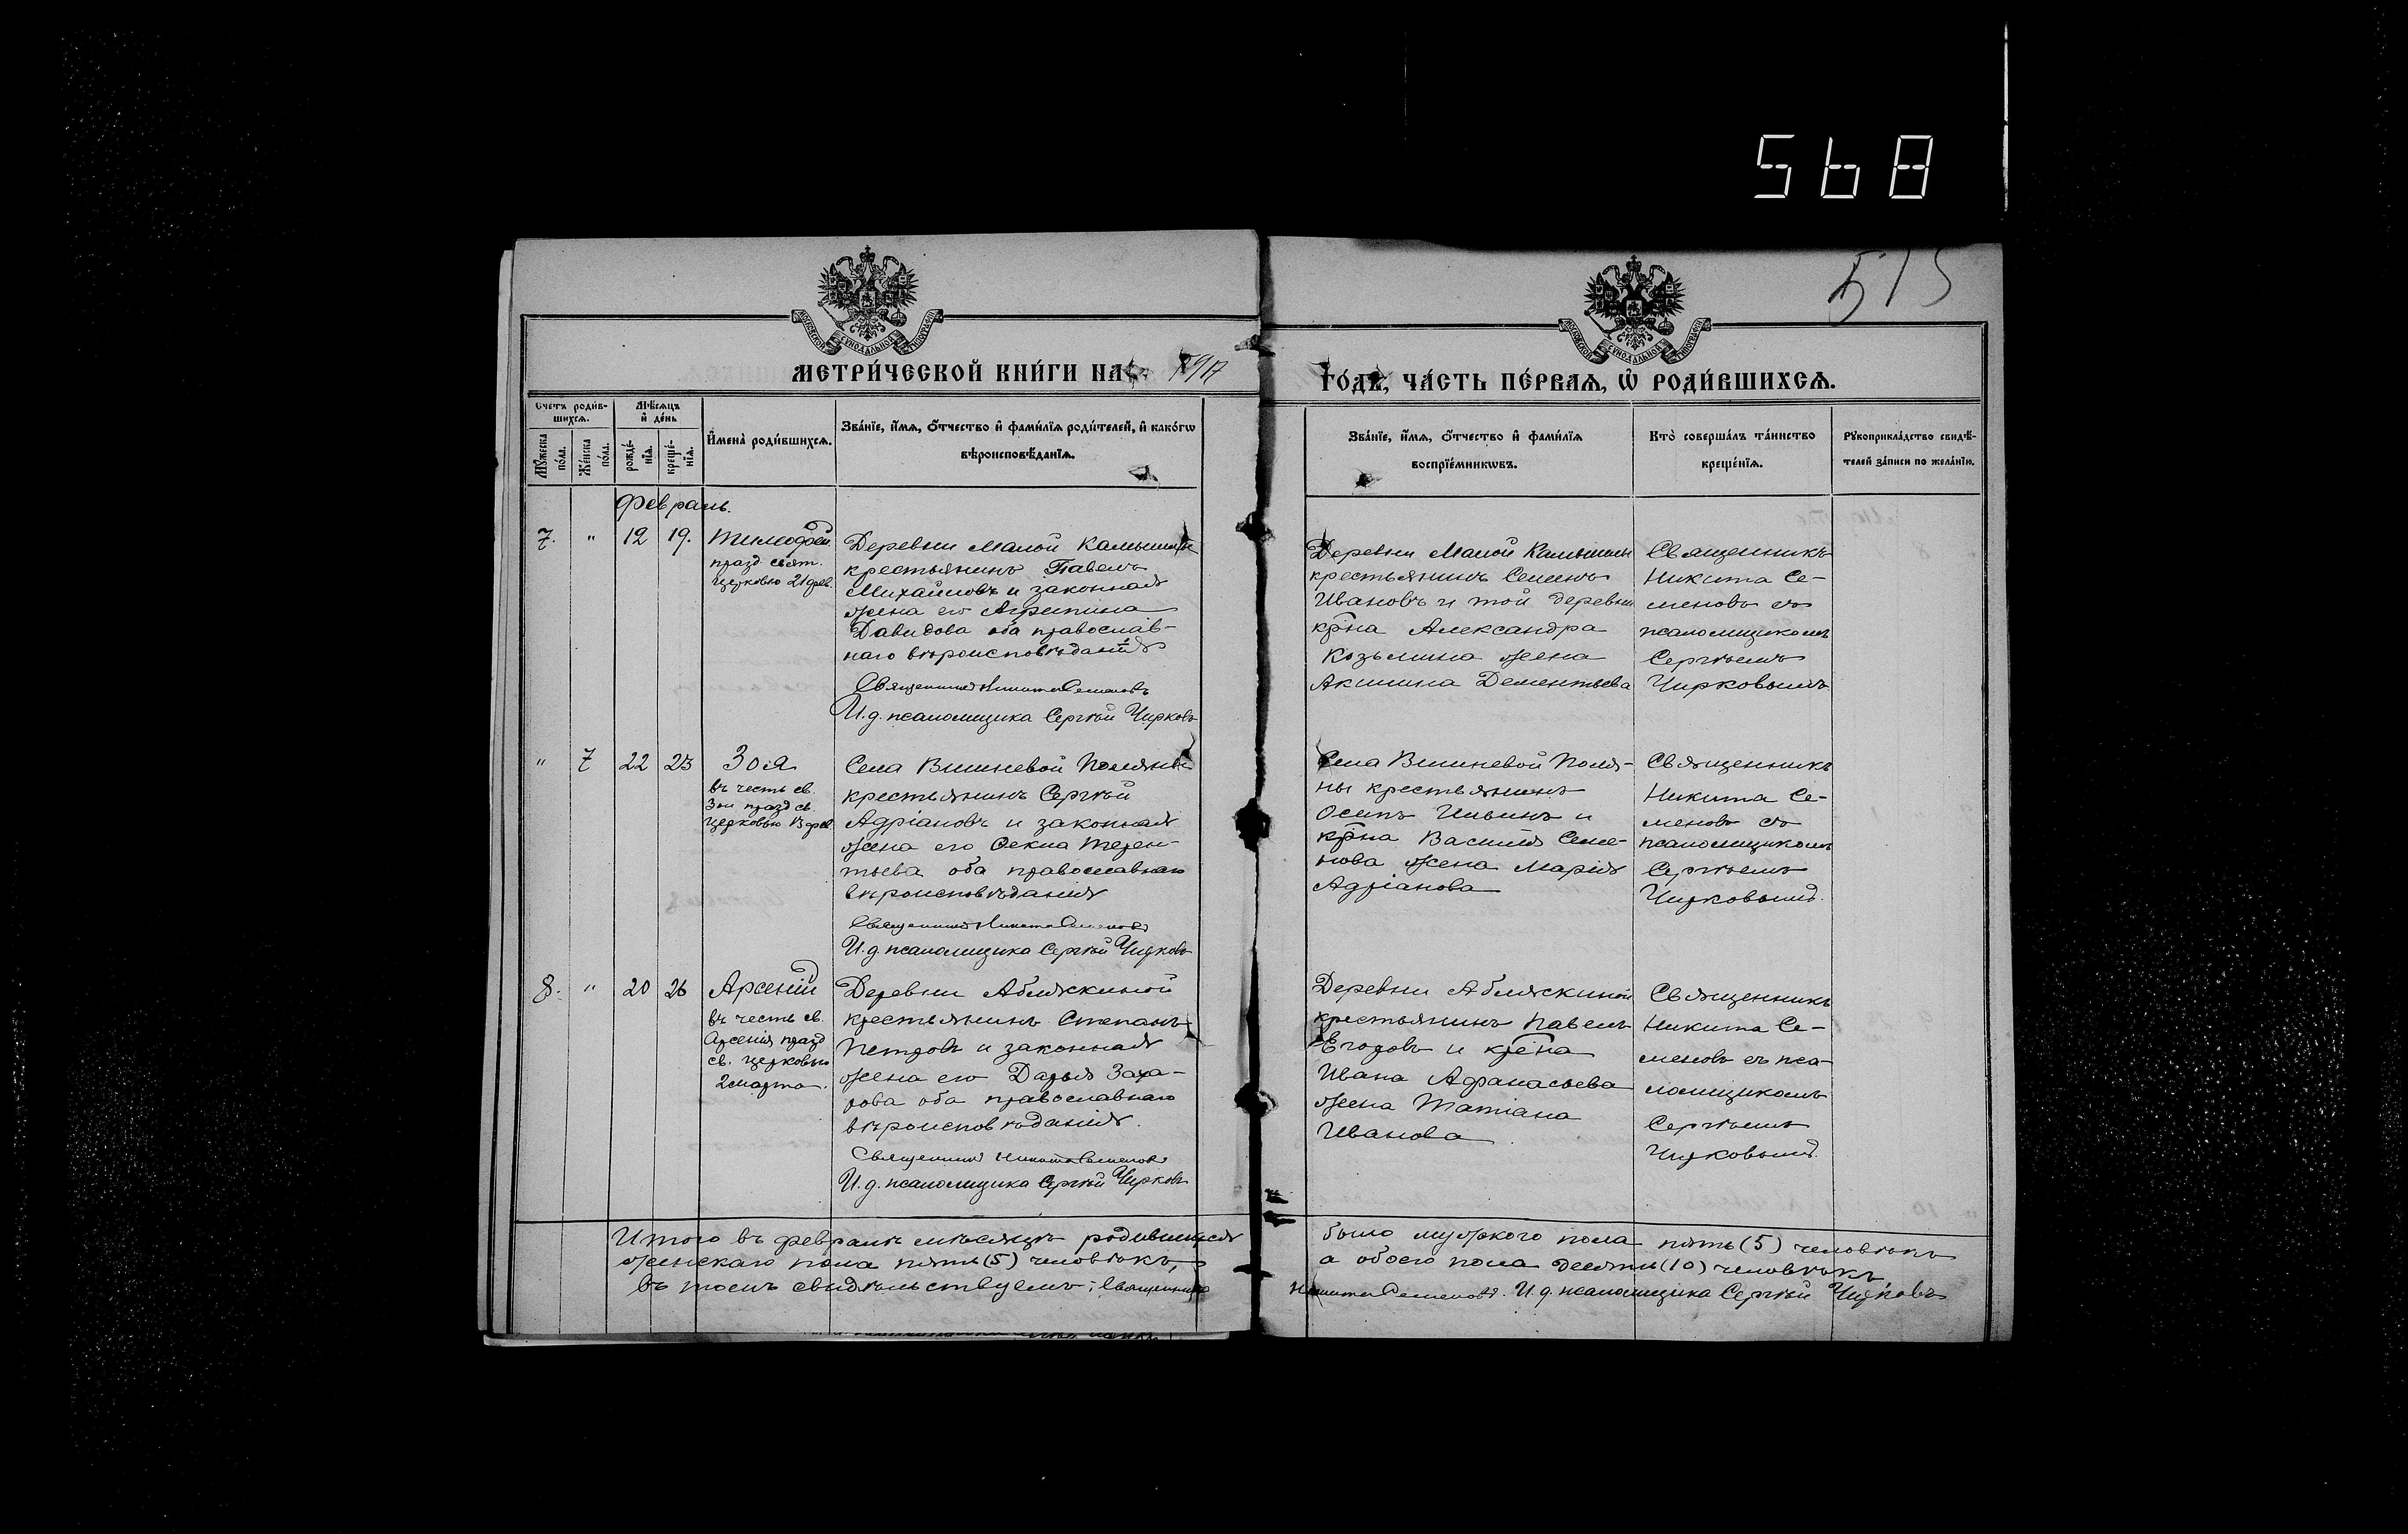 568
515
МЕТРИ́ЧЕСКОЙ КНИ́ГИ НА 1917
ГО́ДЪ, ЧА́СТЬ ПЕ́РВАѦ, Ѽ РОДИ́ВШИХСѦ.
Счетъ роди́в-
шихсѧ.
Мꙋжеска
по́ла.
Же́нска
по́ла.
Мѣ́сѧцъ
и҆ де́нь
рожде́-
нїѧ.
креще́-
нїѧ.
И҆мена̀ роди́вшихсѧ.
Зва́нїе, и҆́мѧ, ѻ҆́тчество и҆ фами́лїѧ роди́телей, и҆ како́гѡ
вѣроисповѣ́данїѧ.
Зва́нїе, и҆́мѧ, ѻ҆́тчество и҆ фами́лїѧ
воспрїе́мникѡвъ.
Кто̀ соверша́лъ та́инство
креще́нїѧ.
Рꙋкоприкла́дство свидѣ́-
телей за́писи по жела́нїю.
Февраль.
7. " 12 19.
Тимофей
празд свят.
церковью 21 фев.
Деревни Малой Камышли
крестьянинъ Павелъ
Михайловъ и законная
жена его Агрипина
Давидова оба православ-
наго вѣроисповѣданія
Священникъ Никита Семеновъ
И. д. псаломщика Сергѣй Чирковъ
Деревни Малой Камышлы
крестьянинъ Семенъ
Ивановъ и той деревни
кр-на Александра
Козьмина жена
Акилина Дементьева
Священникъ
Никита Се-
меновъ съ
псаломщикомъ
Сергѣемъ
Чирковымъ
" 7 22 23
Зоя
въ честь св.
Зои празд св.
церковью 13 фев.
Села Вишневой Поляны
крестьянинъ Сергѣй
Адріановъ и законная
жена его Ѳекла Терен-
тьева оба православнаго
вѣроисповѣданія
Священникъ Никита Семеновъ
И. д. псаломщика Сергѣй Чирковъ
Села Вишневой Поля-
ны крестьянинъ
Осипъ Ильинъ и
кр-на Василія Семе-
нова жена Марія
Адріанова
Священникъ
Никита Се-
меновъ съ
псаломщикомъ
Сергѣемъ
Чирковымъ.
8. " 20 26
Арсеній
въ честь св.
Арсенія празд
св. церковью
2 марта.
Деревни Абляскиной
крестьянинъ Степанъ
Петровъ и законная
жена его Дарья Заха-
рова оба православнаго
вѣроисповѣданія.
Священникъ Никита Семеновъ
И. д. псаломщика Сергѣй Чирковъ
Деревни Абляскиной
крестьянинъ Павелъ
Егоровъ и кр-на
Ивана Афанасьева
жена Татіана
Иванова
Священникъ
Никита Се-
меновъ съ пса-
ломщикомъ
Сергѣемъ
Чирковымъ.
Итого въ февралѣ мѣсяцѣ родившихся было мужского пола пять (5) человѣкъ
женскаго пола пять (5) человѣкъ, а обоего пола десять (10) человѣкъ,
въ томъ свидѣтельствуемъ: Священникъ Никита Семеновъ. И. д. псаломщика Сергѣй Чирковъ